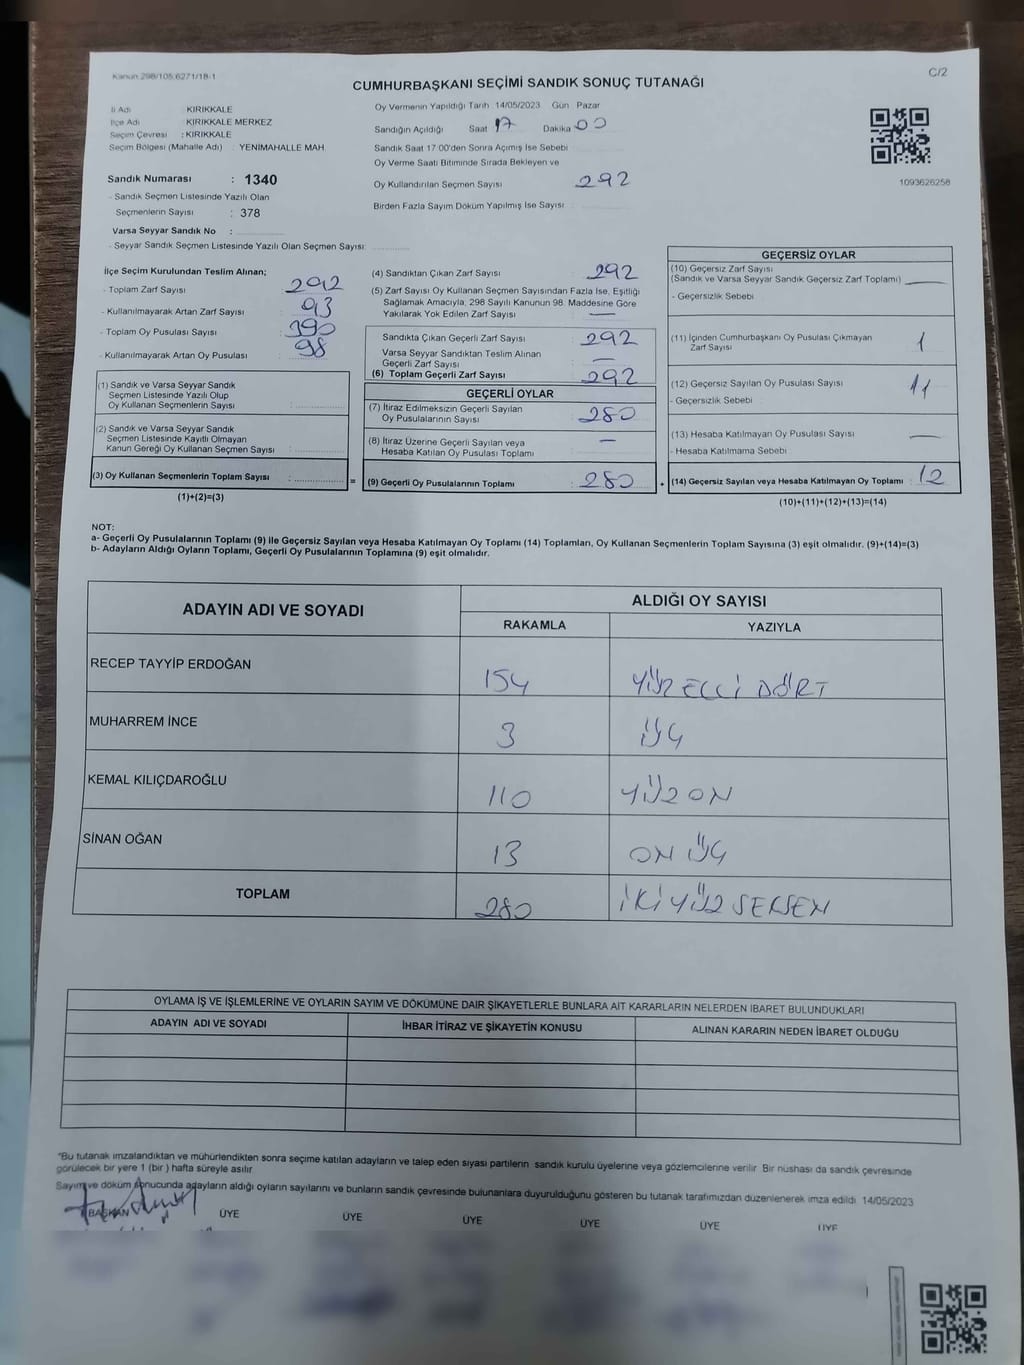 Kanun 298/105,6271/18-1
C/2
CUMHURBAŞKANI SEÇİMİ SANDIK SONUÇ TUTANAĞI
İl Adı : KIRIKKALE
İlçe Adı : KIRIKKALE MERKEZ
Seçim Çevresi : KIRIKKALE
Seçim Bölgesi (Mahalle Adı) : YENİMAHALLE MAH.
Sandık Numarası : 1340
- Sandık Seçmen Listesinde Yazılı Olan
Seçmenlerin Sayısı : 378
Varsa Seyyar Sandık No :
- Seyyar Sandık Seçmen Listesinde Yazılı Olan Seçmen Sayısı:
Oy Vermenin Yapıldığı Tarih 14/05/2023 Gün Pazar
Sandığın Açıldığı Saat 17 Dakika 00
Sandık Saat 17.00'den Sonra Açımış İse Sebebi
Oy Verme Saati Bitiminde Sırada Bekleyen ve
Oy Kullandırılan Seçmen Sayısı 292
Birden Fazla Sayım Döküm Yapılmış İse Sayısı :
1093626258
İlçe Seçim Kurulundan Teslim Alınan;
- Toplam Zarf Sayısı 292
- Kullanılmayarak Artan Zarf Sayısı : 93
- Toplam Oy Pusulası Sayısı : 390
- Kullanılmayarak Artan Oy Pusulası : 98
(1) Sandık ve Varsa Seyyar Sandık
Seçmen Listesinde Yazılı Olup
Oy Kullanan Seçmenlerin Sayısı :
(2) Sandık ve Varsa Seyyar Sandık
Seçmen Listesinde Kayıtlı Olmayan
Kanun Gereği Oy Kullanan Seçmen Sayısı :
(3) Oy Kullanan Seçmenlerin Toplam Sayısı : =
(1)+(2)=(3)
(4) Sandıktan Çıkan Zarf Sayısı : 292
(5) Zarf Sayısı Oy Kullanan Seçmen Sayısından Fazla İse, Eşitliği
Sağlamak Amacıyla, 298 Sayılı Kanunun 98. Maddesine Göre
Yakılarak Yok Edilen Zarf Sayısı : —
Sandıkta Çıkan Geçerli Zarf Sayısı : 292
Varsa Seyyar Sandıktan Teslim Alınan
Geçerli Zarf Sayısı : —
(6) Toplam Geçerli Zarf Sayısı : 292
GEÇERLİ OYLAR
(7) İtiraz Edilmeksizin Geçerli Sayılan
Oy Pusulalarının Sayısı : 280
(8) İtiraz Üzerine Geçerli Sayılan veya
Hesaba Katılan Oy Pusulası Toplamı : —
(9) Geçerli Oy Pusulalarının Toplamı : 280 +
GEÇERSİZ OYLAR
(10) Geçersiz Zarf Sayısı
(Sandık ve Varsa Seyyar Sandık Geçersiz Zarf Toplamı) : —
- Geçersizlik Sebebi
(11) İçinden Cumhurbaşkanı Oy Pusulası Çıkmayan
Zarf Sayısı : 1
(12) Geçersiz Sayılan Oy Pusulası Sayısı : 11
- Geçersizlik Sebebi
(13) Hesaba Katılmayan Oy Pusulası Sayısı : —
- Hesaba Katılmama Sebebi
(14) Geçersiz Sayılan veya Hesaba Katılmayan Oy Toplamı : 12
(10)+(11)+(12)+(13)=(14)
NOT:
a- Geçerli Oy Pusulalarının Toplamı (9) ile Geçersiz Sayılan veya Hesaba Katılmayan Oy Toplamı (14) Toplamları, Oy Kullanan Seçmenlerin Toplam Sayısına (3) eşit olmalıdır. (9)+(14)=(3)
b- Adayların Aldığı Oyların Toplamı, Geçerli Oy Pusulalarının Toplamına (9) eşit olmalıdır.
ADAYIN ADI VE SOYADI
ALDIĞI OY SAYISI
RAKAMLA YAZIYLA
RECEP TAYYİP ERDOĞAN 154 YÜZ ELLİ DÖRT
MUHARREM İNCE 3 ÜÇ
KEMAL KILIÇDAROĞLU 110 YÜZ ON
SİNAN OĞAN 13 ON ÜÇ
TOPLAM 280 İKİ YÜZ SEKSEN
OYLAMA İŞ VE İŞLEMLERİNE VE OYLARIN SAYIM VE DÖKÜMÜNE DAİR ŞİKAYETLERLE BUNLARA AİT KARARLARIN NELERDEN İBARET BULUNDUKLARI
ADAYIN ADI VE SOYADI İHBAR İTİRAZ VE ŞİKAYETİN KONUSU ALINAN KARARIN NEDEN İBARET OLDUĞU
"Bu tutanak imzalandıktan ve mühürlendikten sonra seçime katılan adayların ve talep eden siyasi partilerin sandık kurulu üyelerine veya gözlemcilerine verilir. Bir nüshası da sandık çevresinde
görülecek bir yere 1 (bir ) hafta süreyle asılır.
Sayım ve döküm sonucunda adayların aldığı oyların sayılarını ve bunların sandık çevresinde bulunanlara duyurulduğunu gösteren bu tutanak tarafımızdan düzenlenerek imza edildi. 14/05/2023
BAŞKAN ÜYE ÜYE ÜYE ÜYE ÜYE ÜYE